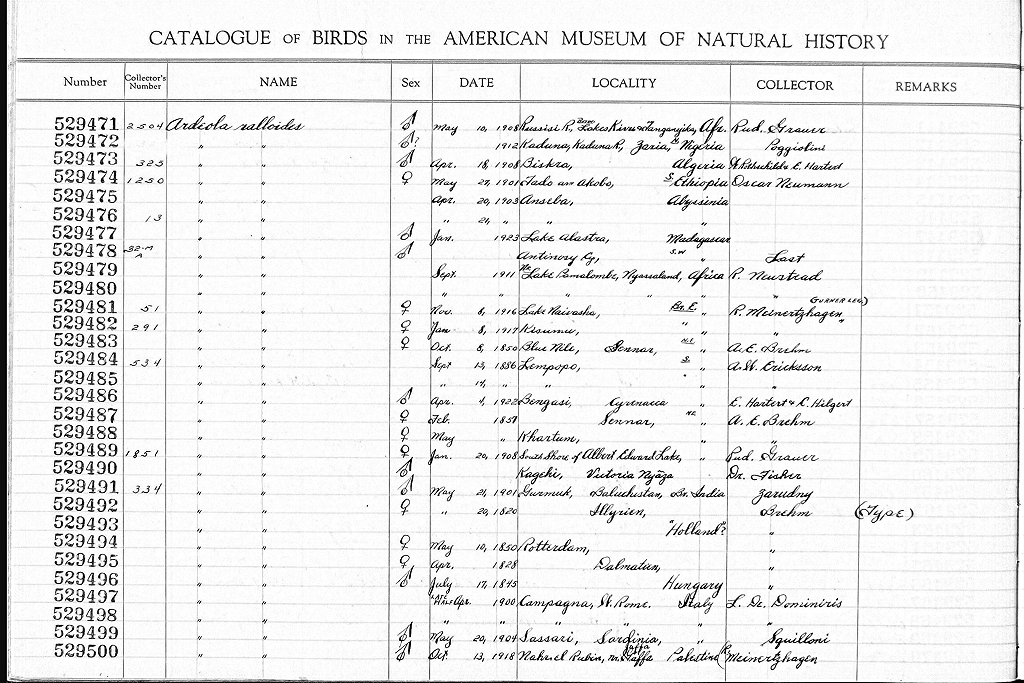 CATALOGUE OF BIRDS IN THE AMERICAN MUSEUM OF NATURAL HISTORY
Number Collector's Number NAME Sex DATE LOCALITY COLLECTOR REMARKS
529471 2504 Ardeola ralloides ♂ May 10, 1908 Russisi R., Lakes Kivu & Tanganyika, Afr. Rud. Grauer
529472 " " ♂? 1912 Kaduna, Kaduna R., Zaria, N. Nigeria Poggiolini
529473 325 " " ♂ Apr. 18, 1908 Biskra, Algeria W. Rothschild & E. Hartert
529474 1250 " " ♀ May 27, 1901 Tado am Akobo, S. Ethiopia Oscar Neumann
529475 " " Apr. 20, 1903 Anseba, Abyssinia
529476 13 " " " 21, " " "
529477 " " ♂ Jan. 1923 Lake Alaotra, Madagascar
529478 " " ♂ Antinosy Cy, S.W. " Last
529479 " " Sept. 1911 Lake Pamalombe, Nyassaland, Africa R. Newstead
529480 " " " " " " " "
529481 51 " " ♀ Nov. 8, 1916 Lake Naivasha, Br. E. " R. Meinertzhagen
529482 291 " " ♀ Jan 8, 1917 Kisumu, " " "
529483 " " ♀ Oct. 8, 1850 Blue Nile, Sennar, N.E. " A. E. Brehm
529484 534 " " Sept 13, 1886 Lempopo, S. " A. W. Ericksson
529485 " " " 14, " " " " "
529486 " " ♂ Apr. 4, 1922 Bengasi, Cyrenaica " E. Hartert & C. Hilgert
529487 " " ♀ Feb. 1851 Sennar, N.E. " A. E. Brehm
529488 " " ♀ May " Khartum, " "
529489 1851 " " ♀ Jan. 20, 1908 South Shore of Albert Edward Lake, " Rud. Grauer
529490 " " ♂ Kageki, Victoria Nyaza Dr. Fisher
529491 334 " " ♂ May 21, 1901 Gurmuk, Baluchistan, Br. India Zarudny
529492 " " ♀ " 20, 1820 Illyrien, Brehm (TYPE)
529493 " " "Holland"? "
529494 " " ♀ May 10, 1850 Rotterdam, "
529495 " " ♀ Apr. 1828 Dalmatien, "
529496 " " ♂ July 17, 1845 Hungary "
529497 " " Apr. 1900 Campagna, W. Rome. Italy L. De. Dominiris
529498 " " " " " " " "
529499 " " ♂ May 20, 1904 Sassari, Sardinia, " Squilloni
529500 " " ♂ Oct. 13, 1918 Nahr el Rubin, nr. Jaffa Palestine R. Meinertzhagen